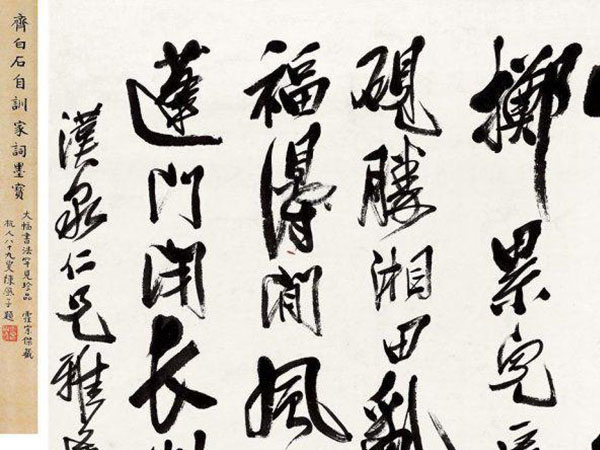 擲累兒
硯勝湘田亂
福得閒風
蓬門閉長
漢泉仁兄雅
齊白石自訓家詞墨寶
大幅書法罕見珍品 霍宗傑藏
杭人八十九叟陳題